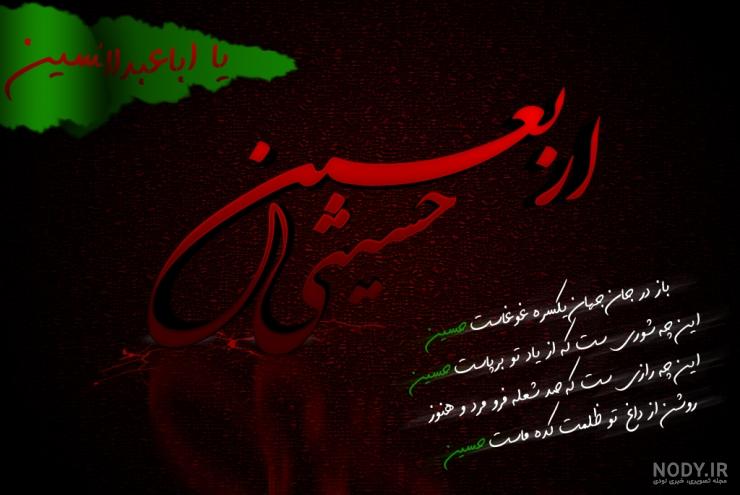 یا اباعبدالحسین
اربعین
حسینی
باز در جان جهان یکسره غوغاست حسین
این چه شوری ست که از یاد تو برپاست حسین
این چه رازی ست که صد شعله فرو مرد و هنوز
روشن از داغ تو ظلمت کده ماست حسین
NODY.IR
مجله تصویری، خبری نودی